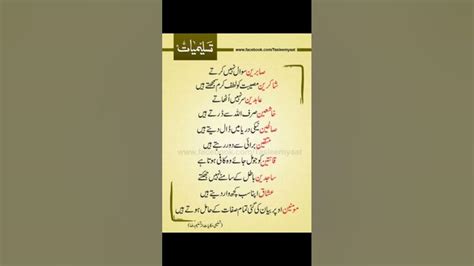 تسلیمیات
www.facebook.com/Tasleemiyaat
صابرین سوال نہیں کرتے
شاکرین مصیبت کو لطف کرم دیکھتے ہیں
عابدین سر نہیں اُٹھاتے
خاشعین صرف اللہ سے ڈرتے ہیں
صالحین نیکی دریا میں ڈال دیتے ہیں
متقین برائی سے دور رہتے ہیں
قانتین کو جو مل جائے وہ کافی ہوتا ہے
ساجدین باطل کے سامنے نہیں جھکتے
عشاق اپنا سب کچھ وار دیتے ہیں
مومنین اوپر بیان کی گئی تمام صفات کے حامل ہوتے ہیں